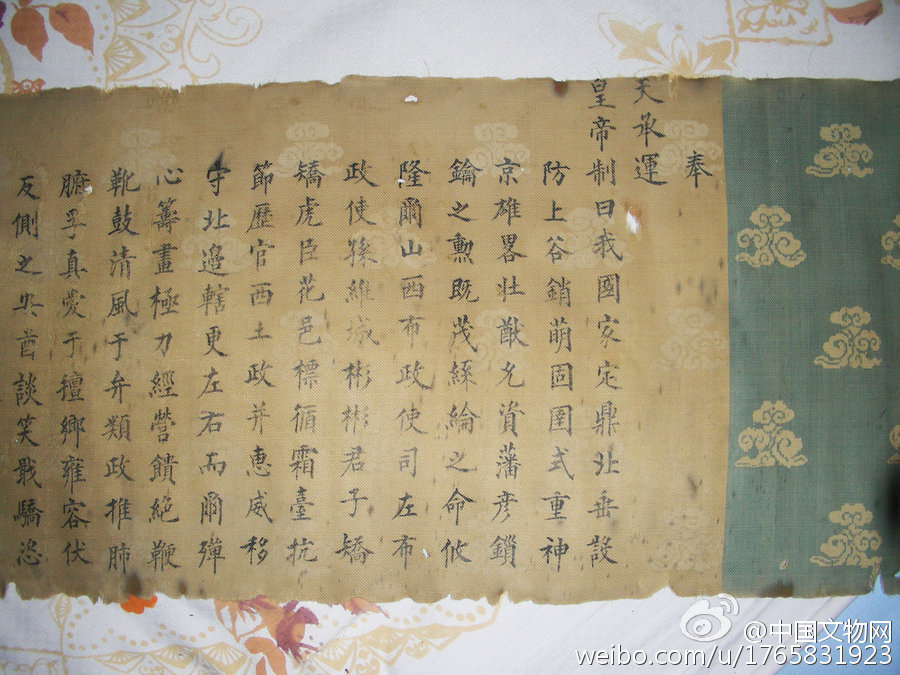 奉
天承運
皇帝制曰我國家定鼎北垂設
防上谷銷萌固圉式重神
京雄畧壯猷允資藩彥鎖
鑰之勲既茂絲綸之命攸
隆爾山西布政使司左布
政使孫維城彬彬君子矯
矯虎臣花邑標循霜臺抗
節歷官西土政并惠威移
守北邊轄更左右而爾殫
心籌畫極力經營饋絕鞭
靴鼓清風于弁類政推肺
腑孚真愛于羶鄉雍容伏
反側之談笑戢驕恣
@中国文物网
weibo.com/u/1765831923